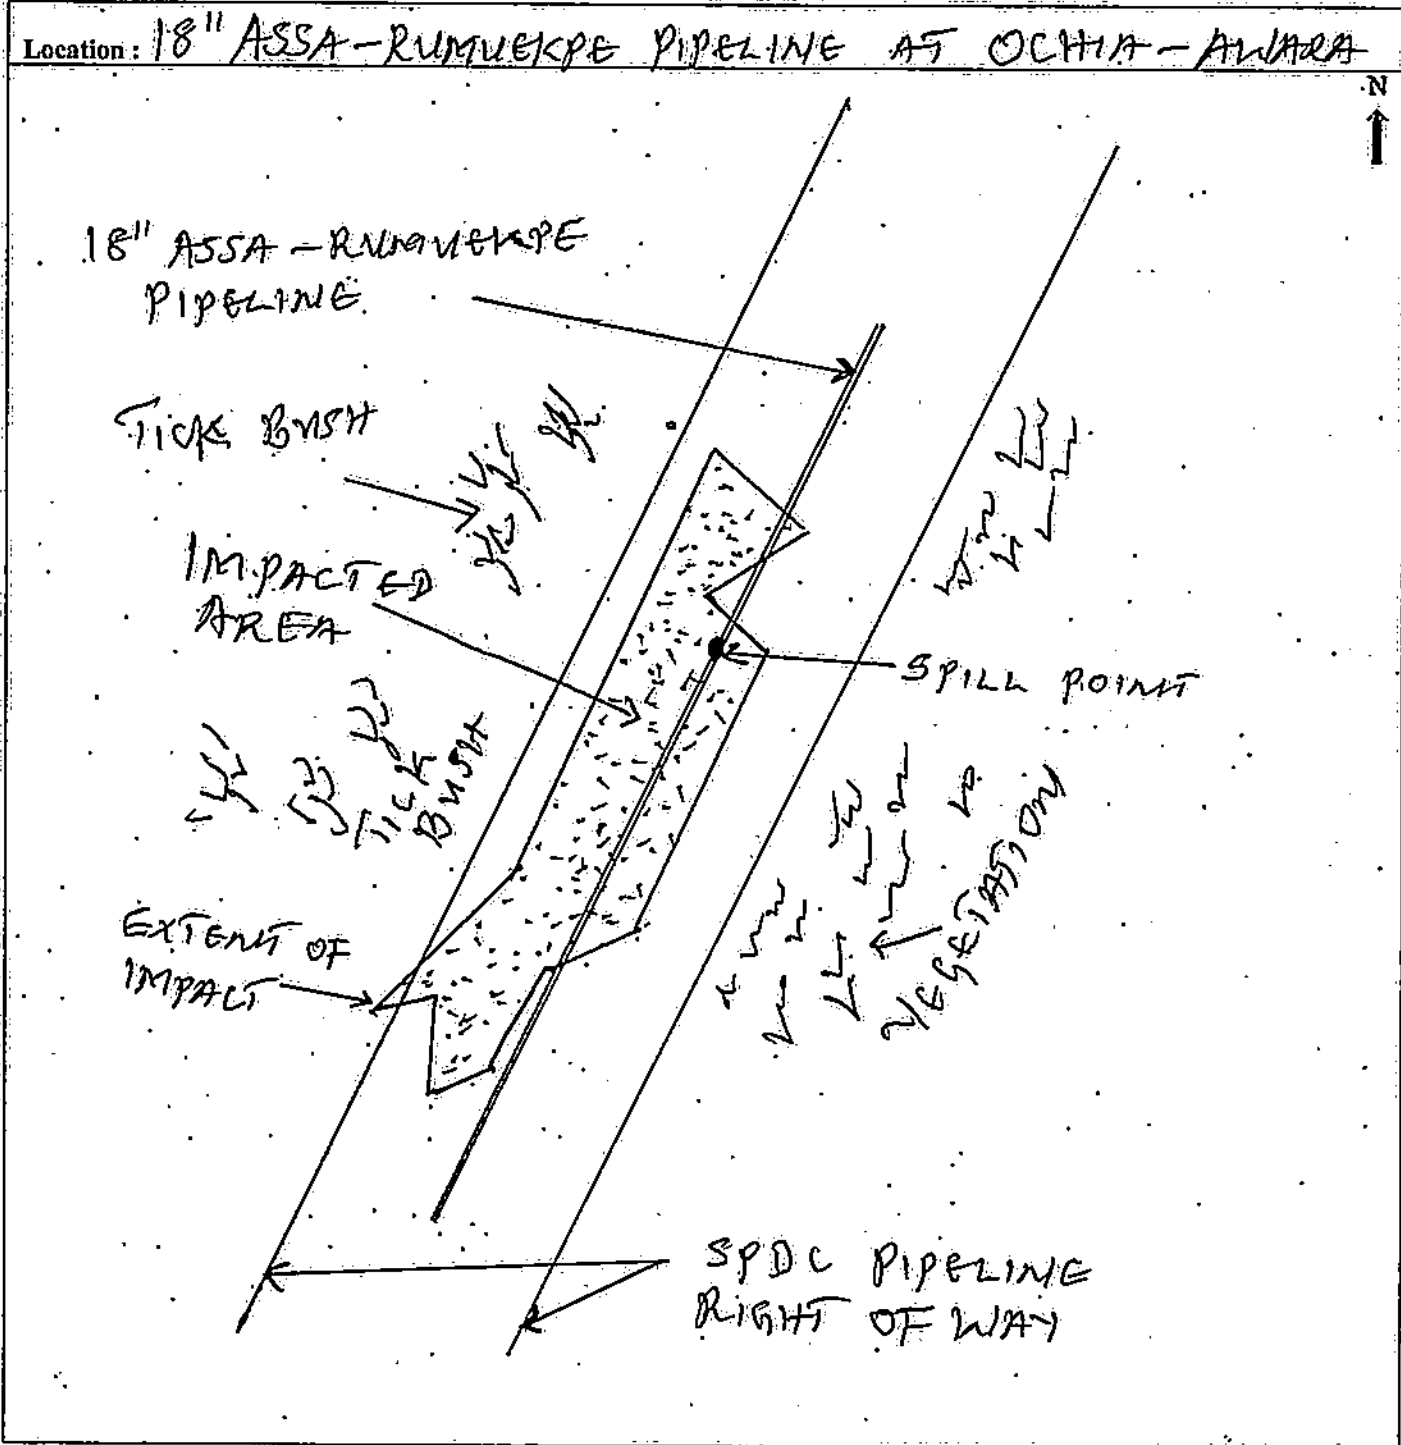 Location: 18" ASSA-RUMUEKPE PIPELINE AT OCHIA-AWARA
N
18" ASSA-RUMUEKPE
PIPELINE.
TICK BUSH
IMPACTED
AREA
SPILL POINT
TICK
BUSH
VEGETATION
EXTENT OF
IMPACT
SPDC PIPELINE
RIGHT OF WAY